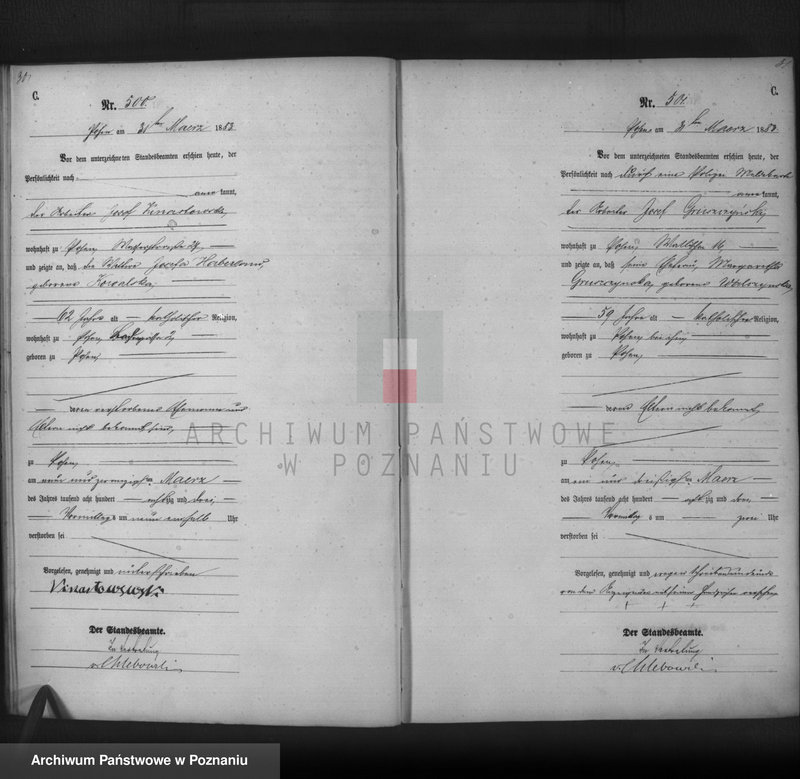 C.
Nr. 500.
Posen am 31ten Maerz 1883.
Vor dem unterzeichneten Standesbeamten erschien heute, der
Persönlichkeit nach
kannt,
der Arbeiter Josef
wohnhaft zu Posen,
und zeigte an, daß die Wittwe Josefa
geborene Kowalska,
62 Jahre alt katholischer Religion,
wohnhaft zu Posen
geboren zu Posen,
deren verstorbener Ehemann und
Eltern nicht bekannt sind,
zu Posen,
am neun und zwanzigsten Maerz
des Jahres tausend acht hundert achtzig und drei,
Vormittags um neun einhalb Uhr
verstorben sei
Vorgelesen, genehmigt und unterschrieben
Der Standesbeamte.
In Vertretung
v. Chlebowski
C.
Nr. 501.
Posen am 31ten Maerz 1883.
Vor dem unterzeichneten Standesbeamten erschien heute, der
Persönlichkeit nach durch
kannt,
der Arbeiter Josef Gruszczyński,
wohnhaft zu Posen, Wallischei 16
und zeigte an, daß seine Ehefrau, Margaretha
Gruszczynska, geborene
59 Jahre alt katholischer Religion,
wohnhaft zu Posen bei ihm
geboren zu Posen,
deren Eltern nicht bekannt,
zu Posen,
am ein und dreißigsten Maerz
des Jahres tausend acht hundert achtzig und drei,
Vormittags um zwei Uhr
verstorben sei
Vorgelesen, genehmigt und wegen
von dem
+ + +
Der Standesbeamte.
In Vertretung
v. Chlebowski
ARCHIWUM PAŃSTWOWE
W POZNANIU
Archiwum Państwowe w Poznaniu